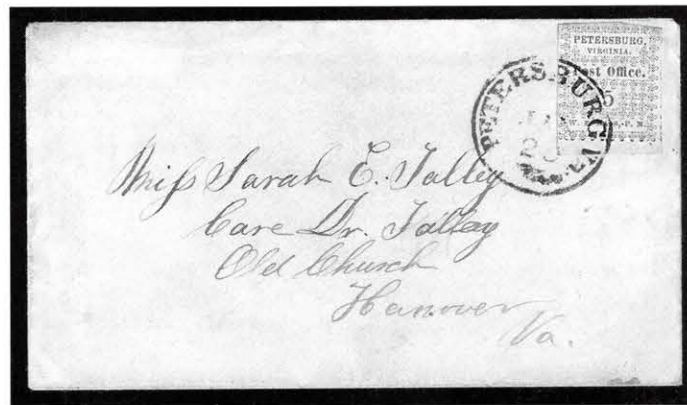 PETERSBURG,
VIRGINIA.
Post Office.
5
PETERSBURG Va.
Miss Sarah E. Talley
Care Dr. Talley
Old Church
Hanover
Va.